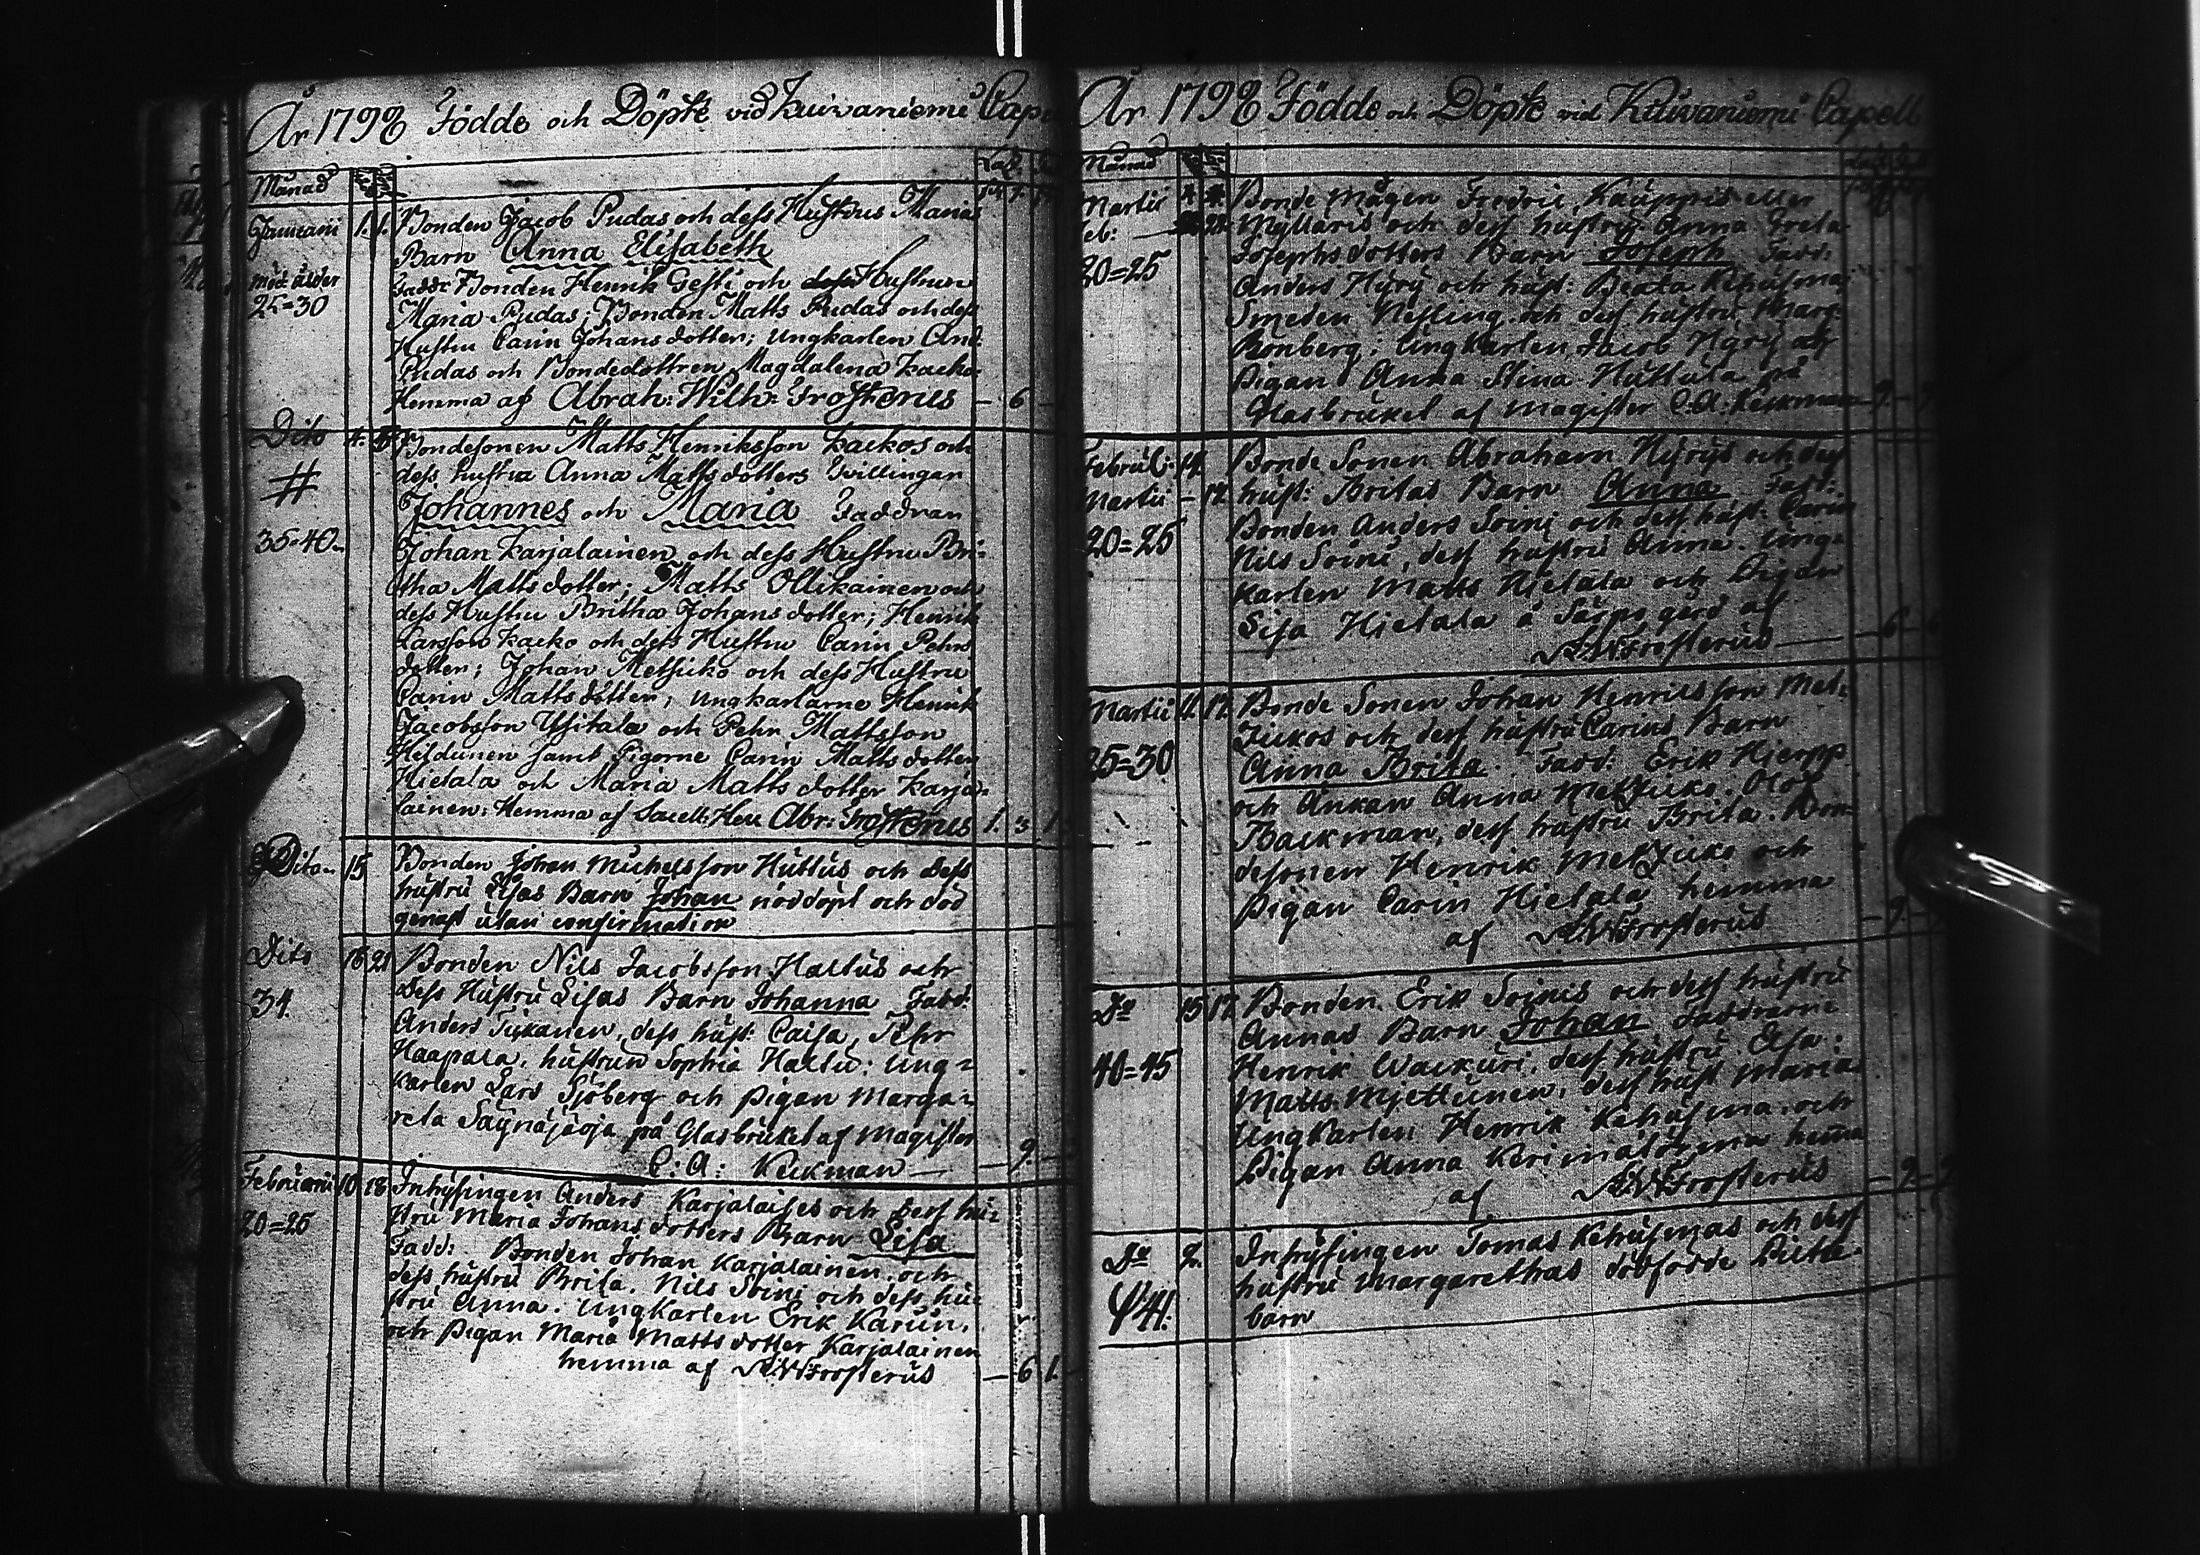 År 1798 Födde och Döpte vid Kuivaniemi Cap
Månad
Januarii 1. 1. Bonden Jacob Pudas och dess Hustrus Marias
Barn Anna Elisabeth
Mod. ålder
25=30
Faddr Bonden Henrik Gesti och Hustrun
Maria Pudas; Bonden Matts Pudas och dess
Hustru Carin Johansdotter; Ungkarlen And.
Pudas och Bondedottren Magdalena Kacko
Hemma af Abrah: Wilh: Frosterus — 6 —
Dito 4. Bondesonen Matts Henriksson Kackos och
dess hustru Anna Mattsdotters Tvillingar
#
Johannes och Maria Faddran
35=40
Johan Karjalainen och dess Hustru Bri-
tha Mattsdotter; Matts Ollikainen och
dess Hustru Britha Johansdotter; Henrik
Larsson Kacko och dess Hustru Carin Pehrs
dotter; Johan Metsjuko och dess Hustru
Carin Mattsdotter; Ungkarlarne Henrik
Jacobsson Ylitala och Pehr Mattsson
Hildunen samt Pigorne Carin Mattsdotter
Hietala och Maria Mattsdotter Karja-
lainen: Hemma af Sacell: Herr Abr: Frosterus 1. 3 1
Dito 15 Bonden Johan Michelsson Huttus och Dess
hustru Lisas Barn Johan nöddöpt och död
genast utan confirmation
Dito 16 21 Bonden Nils Jacobsson Haltus och
34.
Dess Hustru Lisas Barn Johanna Fadd:
Anders Tiikanen, dess hust: Caisa, Pehr
Haapala, hustrun Sophia Haltu: Ung=
karlen Lars Sjöberg och pigan Marga=
reta Säynäjäoja på Glasbruket af Magister
C: A: Keckman — — 9. —
Februarii 10 18 Inhysingen Anders Karjalaises och dess hu=
20=25
stru Maria Johans dotters Barn Lisa
Fadd: Bonden Johan Karjalainen och
dess hustru Brita. Nils Soini och dess hu=
stru Anna. Ungkarlen Erik Karun,
och pigan Maria Mattsdotter Karjalainen
hemma af A:W:Frosterus — 6 1.
År 1798 Födde och Döpte vid Kuivaniemi Capell
Månad
Martii Bonde Mågen Fredric Kauppis eller
Feb: Myllaris och dess hustru Anna Greta
20=25 Josephsdotters Barn Joseph Fadd:
Anders Hyry och hust: Beata Kehusma
Smeden Nessling och dess hustru Marg:
Ronberg; Ungkarlen Jacob Hyry och
Pigan Anna Stina Huttula på
Glasbruket af Magister C: A: Keckman — 9 — 9
Februl: 14. Bonde Sonen Abraham Hyrys och dess
Martii — 17. hust: Britas Barn Anna Fadd:
20=25 Bonden Anders Soini och dess hust: Carin
Nils Soini, dess hustru Anna. Ung=
karlen Matts Hietala och Pigan
Lisa Hietala å gård af
A:W:Frosterus — — 6 — 6
Martii 11. 17. Bonde Sonen Johan Henricsson Met=
zjukos och dess hustru Carins Barn
25=30 Anna Brita. Fadd: Erik Hierpp
och Ankan Anna Metzjuko. Olof
Backman, dess hustru Brita. Bon=
desonen Henrik Metzjuko och
pigan Carin Hietala hemma
af A:W:Frosterus — 9. —
Do 15 17. Bonden Erik Soinis och dess hustru
Annas Barn Johan Faddrarne
40=45 Henrik Wackuri, dess hustru Elsa:
Matts Mjettunen, dess hust Maria
Ungkarlen Henrik Kehusma och
Pigan Anna hemma
af A:W:Frosterus — 9 — 9
Do 2. Inhysingen Tomas Kehusmas och dess
hustru Margarethas dödfödde
41: barn